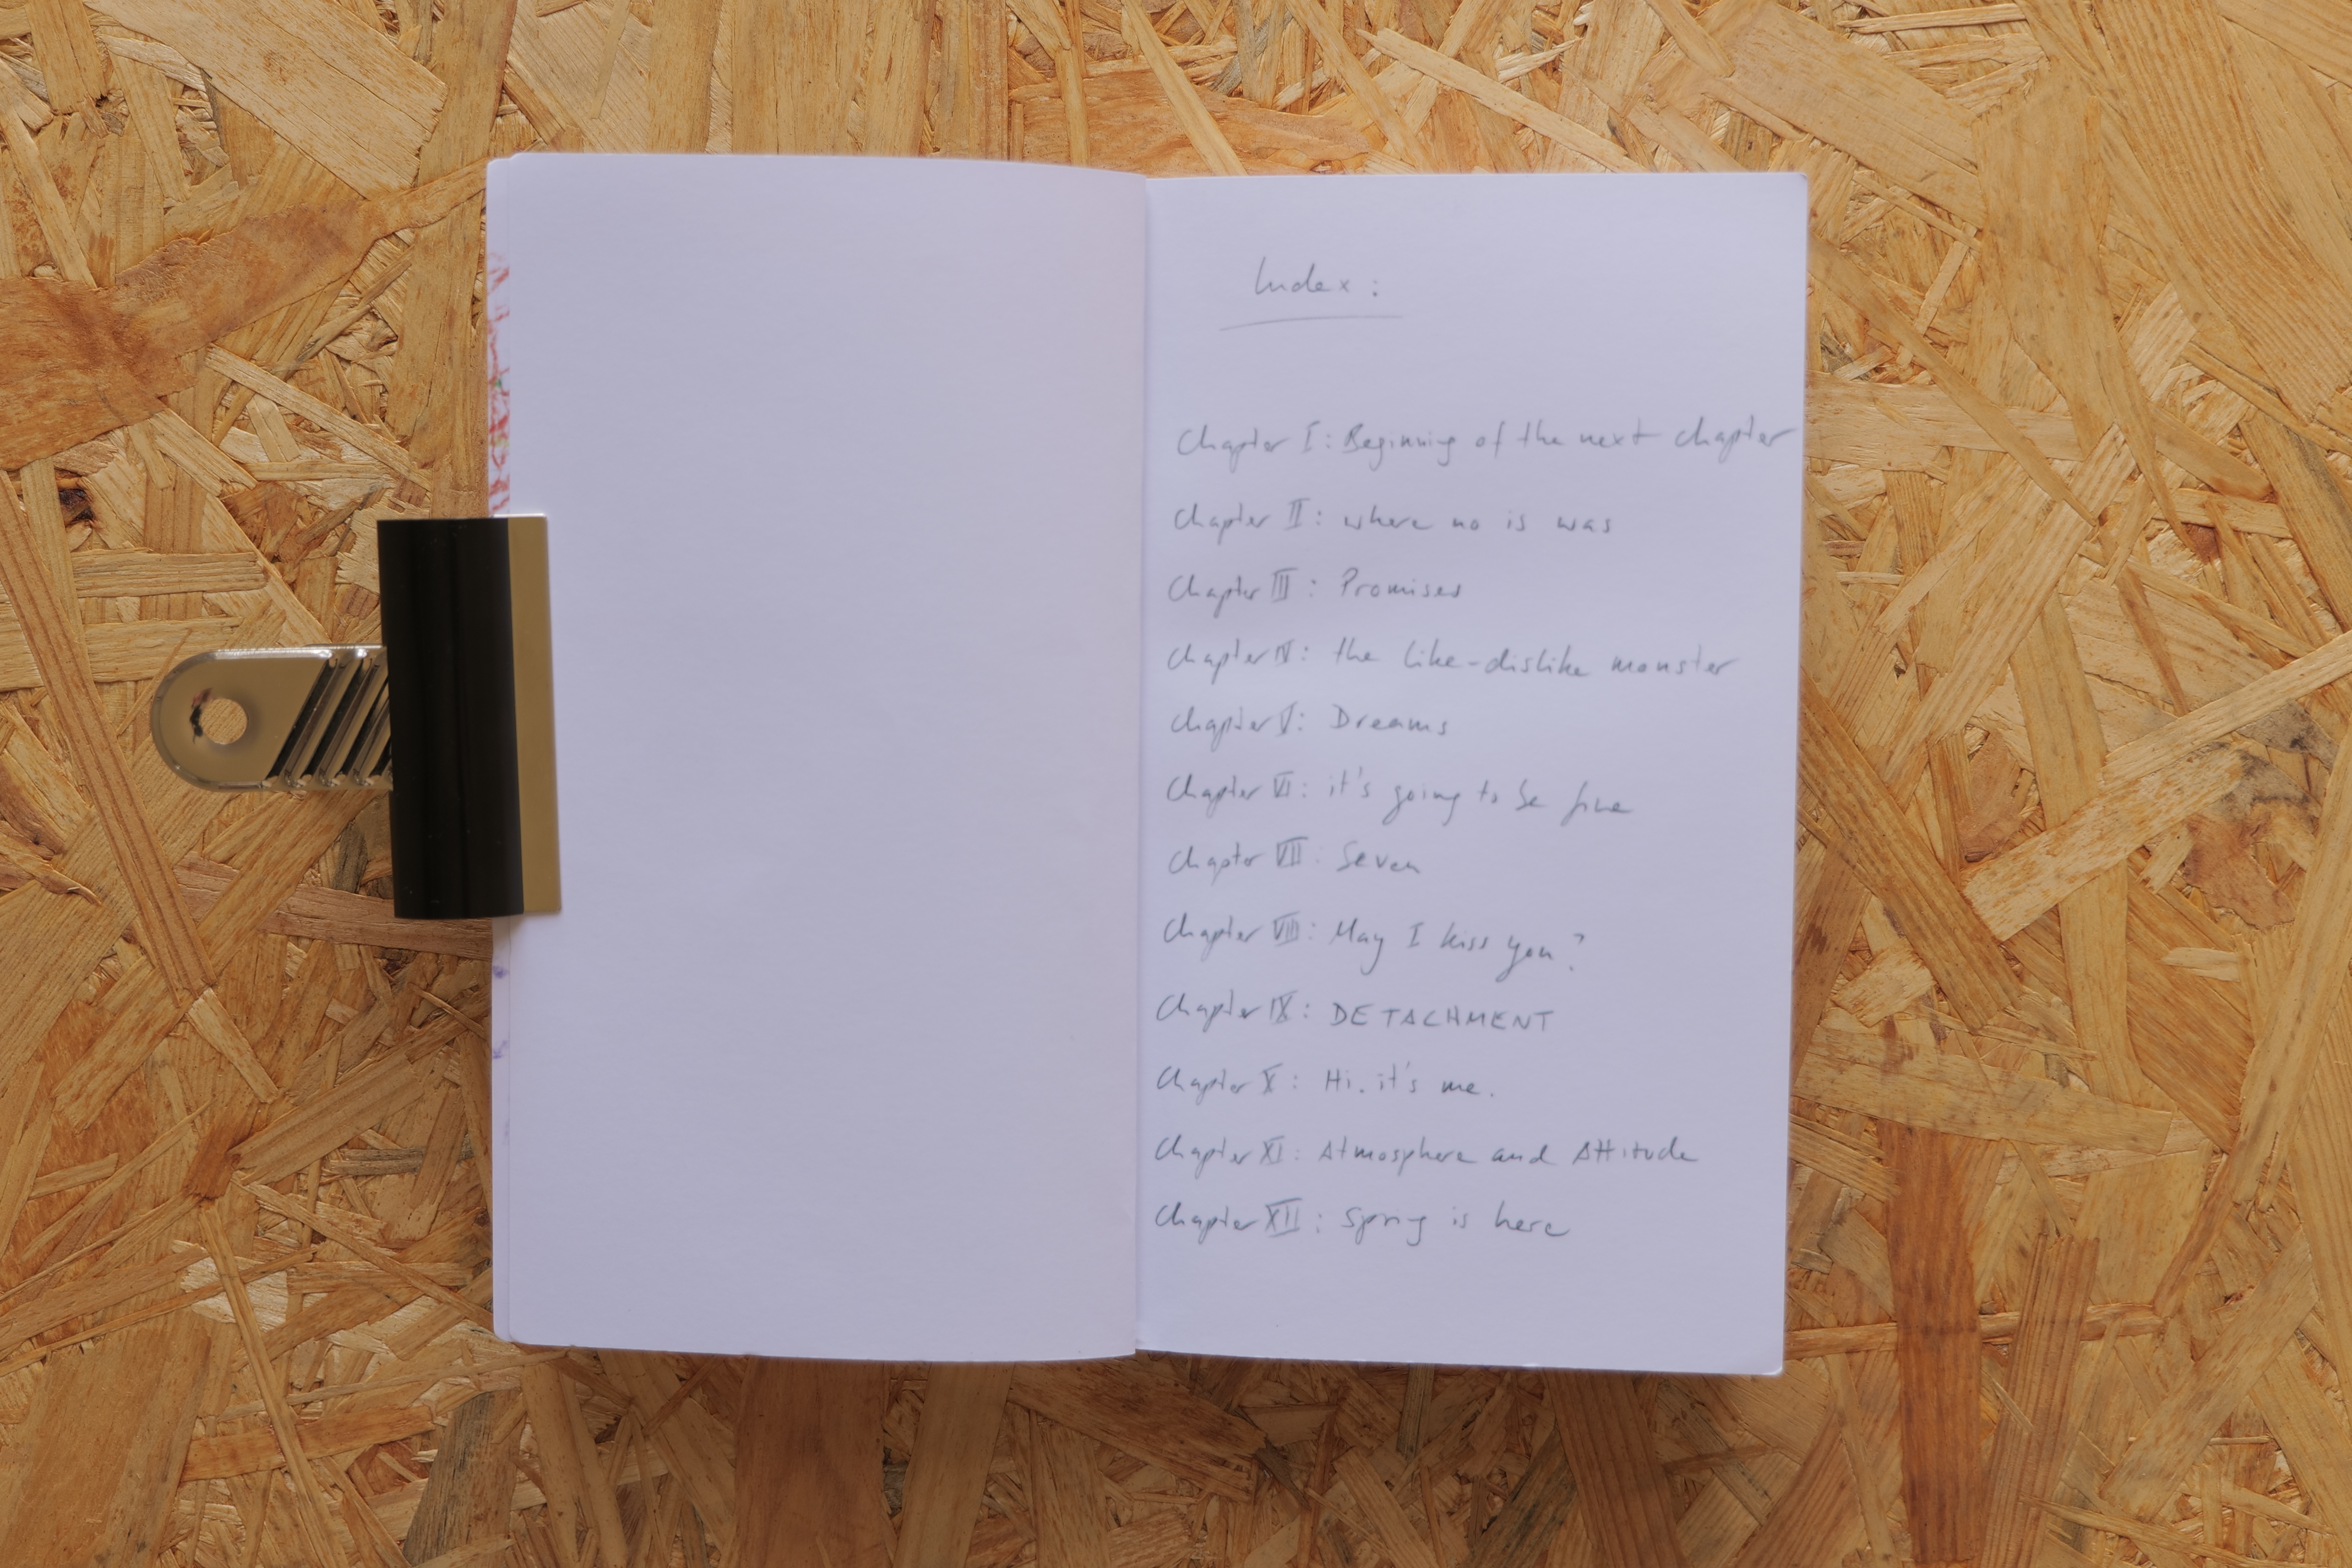 Index:
Chapter I: Beginning of the next chapter
Chapter II: where no is was
Chapter III: Promises
Chapter IV: the like-dislike monster
Chapter V: Dreams
Chapter VI: it's going to be fine
Chapter VII: Seven
Chapter VIII: May I kiss you?
Chapter IX: DETACHMENT
Chapter X: Hi. it's me.
Chapter XI: Atmosphere and Attitude
Chapter XII: Spring is here